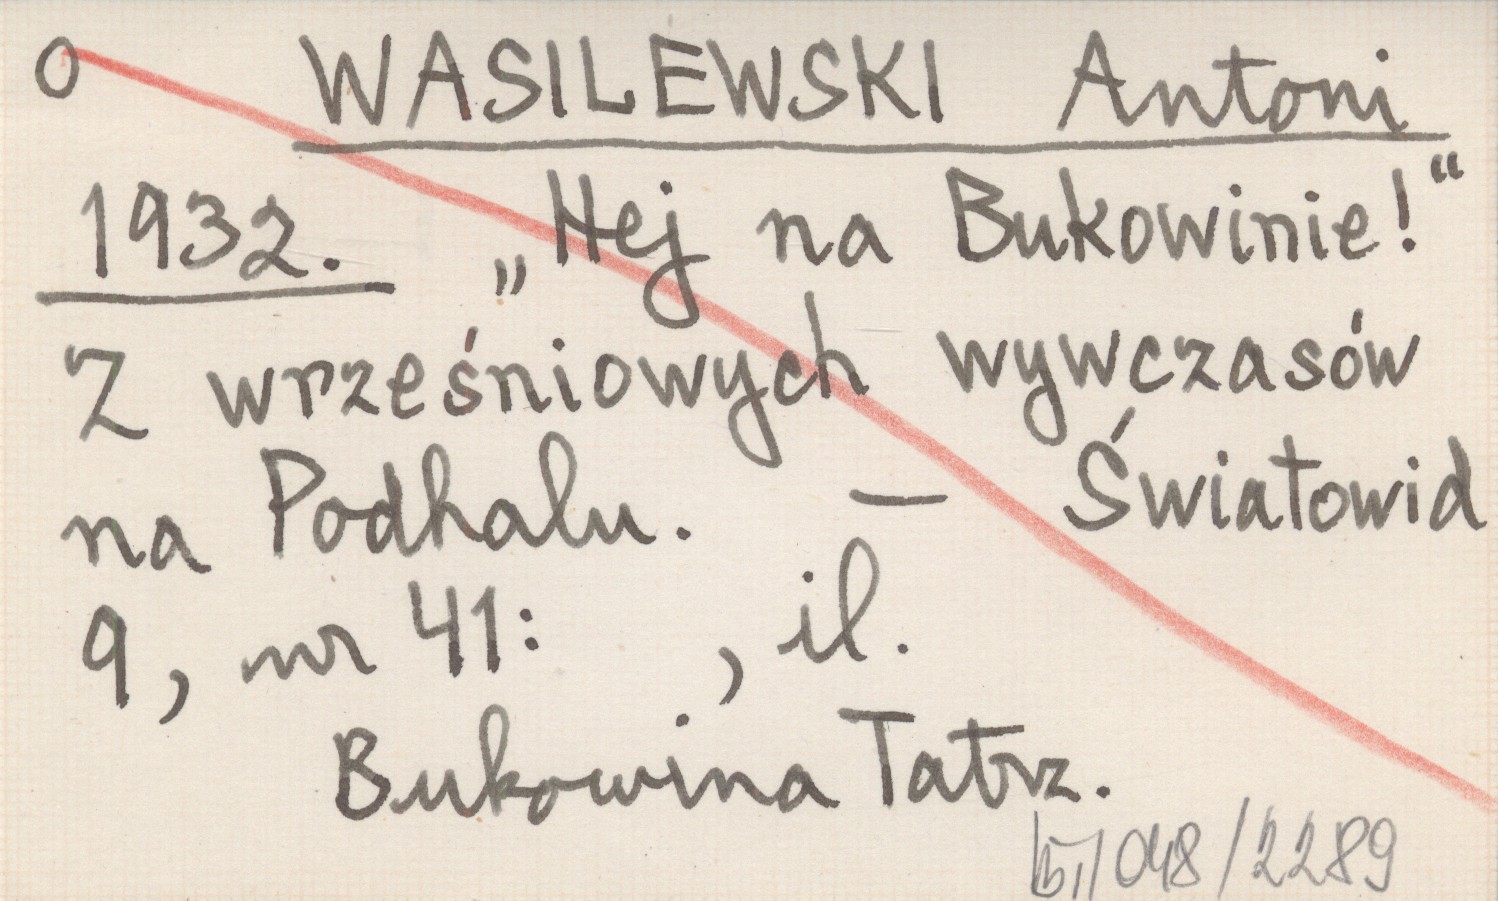 O WASILEWSKI Antoni
1932. „Hej na Bukowinie!“
Z wrześniowych wywczasów
na Podhalu. — Światowid
9, nr 41: , il.
Bukowina Tatrz.
/048/2289